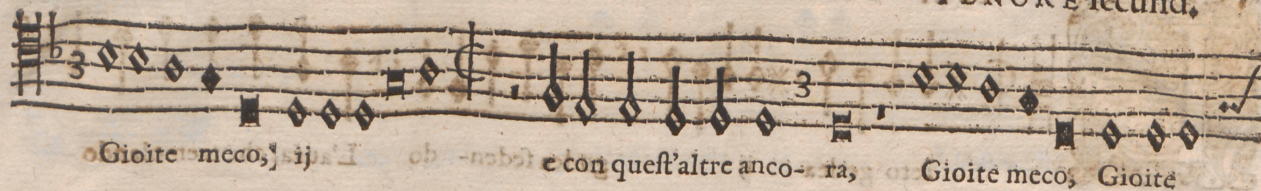 TENORE secund.
3
3
Gioite meco, ij e con quest'altre anco- ra, Gioite meco, Gioite